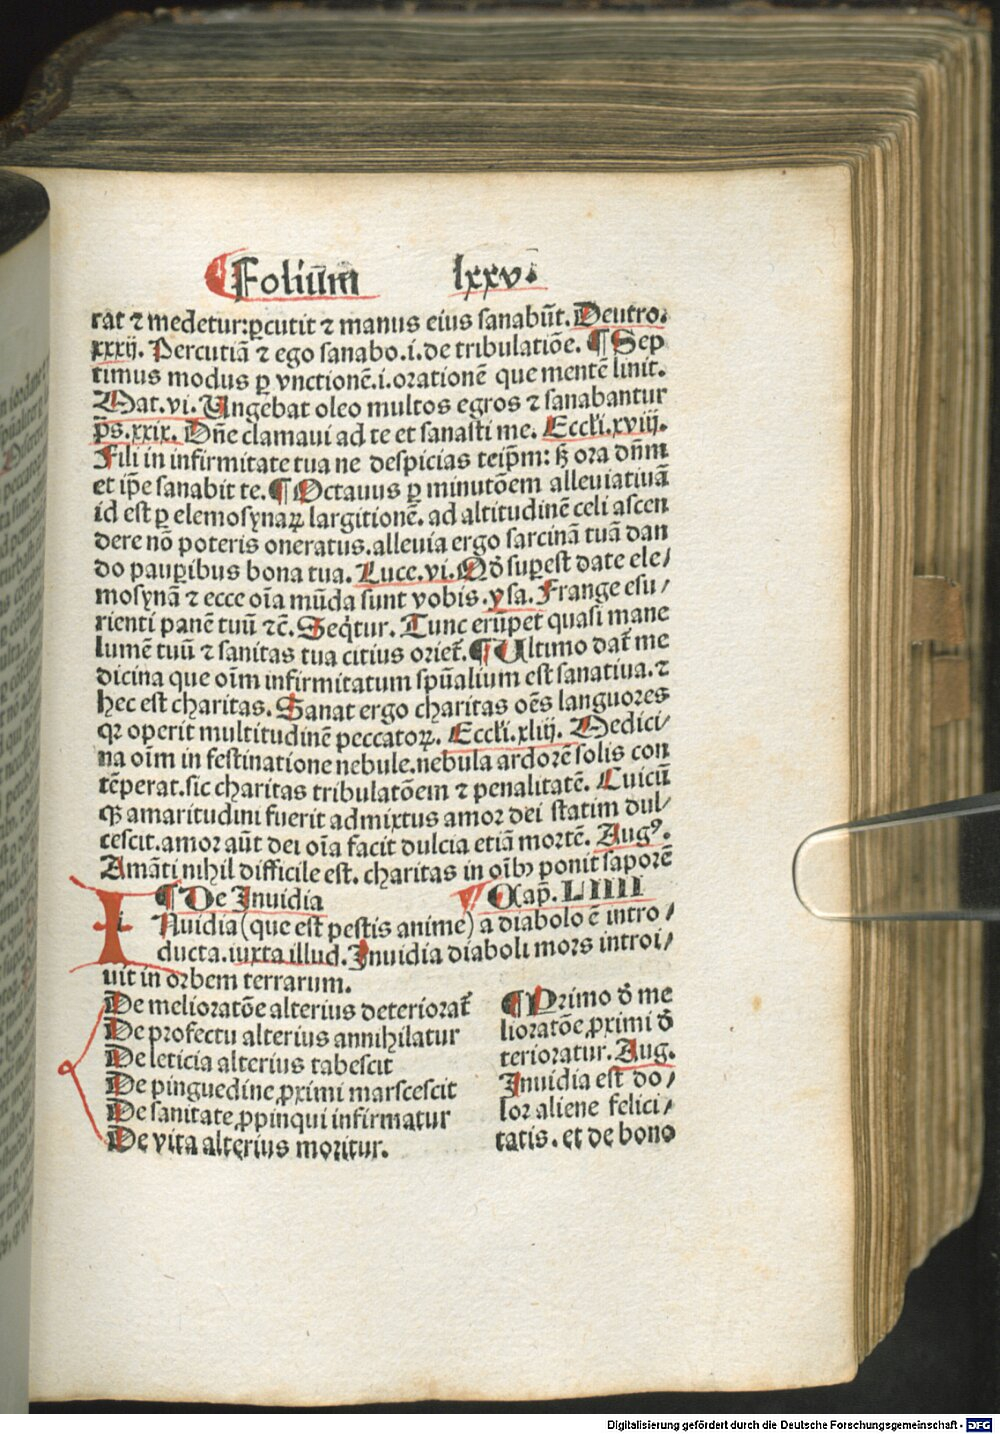 ¶Foliũm lxxv.
rat ⁊ medetur:ꝑcutit ⁊ manus eius sanabũt. Deutro.
xxxij. Percutiã ⁊ ego sanabo.i.de tribulatiõe. ¶ Sep
timus modus ꝑ vnctionẽ.i.orationẽ que mentẽ linit.
Mat.vi. Ungebat oleo multos egros ⁊ sanabantur
p̃s.xxix. Dñe clamaui ad te et sanasti me. Eccłi.xviij.
Fili in infirmitate tua ne despicias teip̃m: ꝫ ora dñm
et ip̃e sanabit te. ¶ Octauus ꝑ minutõem alleuiatiuã
id est ꝑ elemosynaꝝ largitionẽ. ad altitudinẽ celi ascen
dere nõ poteris oneratus.alleuia ergo sarcinã tuã dan
do pauꝑibus bona tua. Luce.vi. Qđ suꝑest date ele/
mosynã ⁊ ecce oĩa mũda sunt vobis.ysa. Frange esu/
rienti panẽ tuũ ⁊c̃. Seq̃tur. Tunc erũpet quasi mane
lumẽ tuũ ⁊ sanitas tua citius oriet̃. ¶ Ultimo dat̃ me
dicina que oĩm infirmitatum spũalium est sanatiua. ⁊
hec est charitas. Sanat ergo charitas oẽs languores
qꝛ operit multitudinẽ peccatoꝝ. Eccłi.xliij. Medici/
na oĩm in festinatione nebule.nebula ardorẽ solis con
tẽperat.sic charitas tribulatõem ⁊ penalitatẽ. Cuicũ
qꝫ amaritudini fuerit admixtus amor dei statim dul/
cescit.amor aũt dei oĩa facit dulcia etiã mortẽ. Augꝰ.
Amãti nihil difficile est. charitas in oĩbꝫ ponit saporẽ
¶ De Inuidia ¶ Cap̃. LIIII
INuidia (que est pestis anime) a diabolo ẽ intro/
ducta.iuxta illud. Inuidia diaboli mors introi/
uit in orbem terrarum.
De melioratõe alterius deteriorat̃
De profectu alterius annihilatur
De leticia alterius tabescit
De pinguedine ꝓximi marscescit
De sanitate ꝓpinqui infirmatur
De vita alterius moritur.
¶ Primo đ me
lioratõe ꝓximi đ
terioratur. Aug.
Inuidia est do/
lor aliene felici/
tatis. et de bono
Digitalisierung gefördert durch die Deutsche Forschungsgemeinschaft - DFG